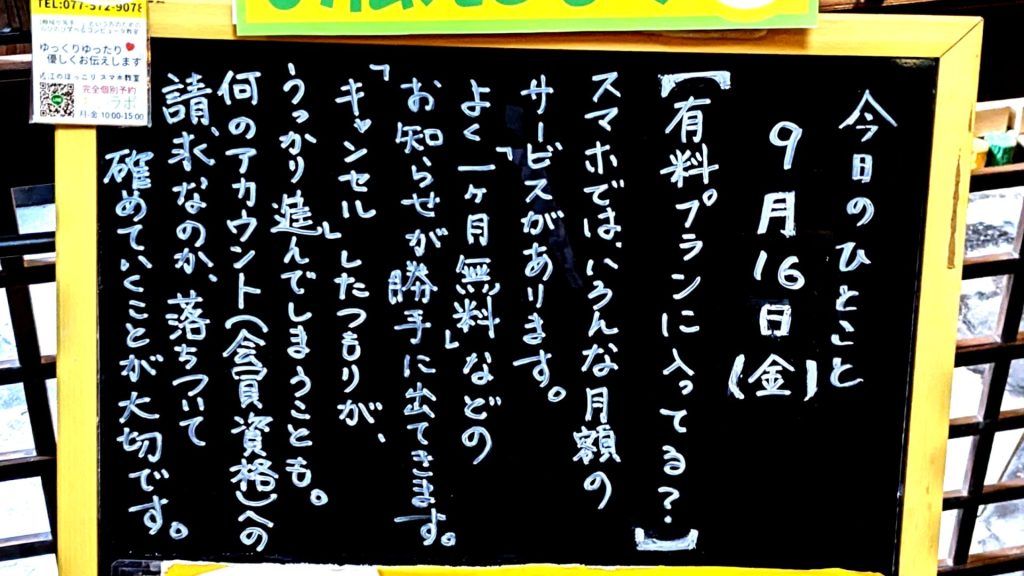 今日のひとこと
9月16日(金)
【有料プランに入ってる?】
スマホでは、いろんな月額の
サービスがあります。
よく「一ヶ月無料」などの
お知らせが勝手に出てきます。
「キャンセル」したつもりが、
うっかり進んでしまうことも。
何のアカウント(会員資格)への
請求なのか、落ちついて
確めていくことが大切です。
TEL:077-572-9078
ゆっくりゆったり
優しくお伝えします
スマホ教室
完全個別予約
ラボ
月-金 10:00-15:00